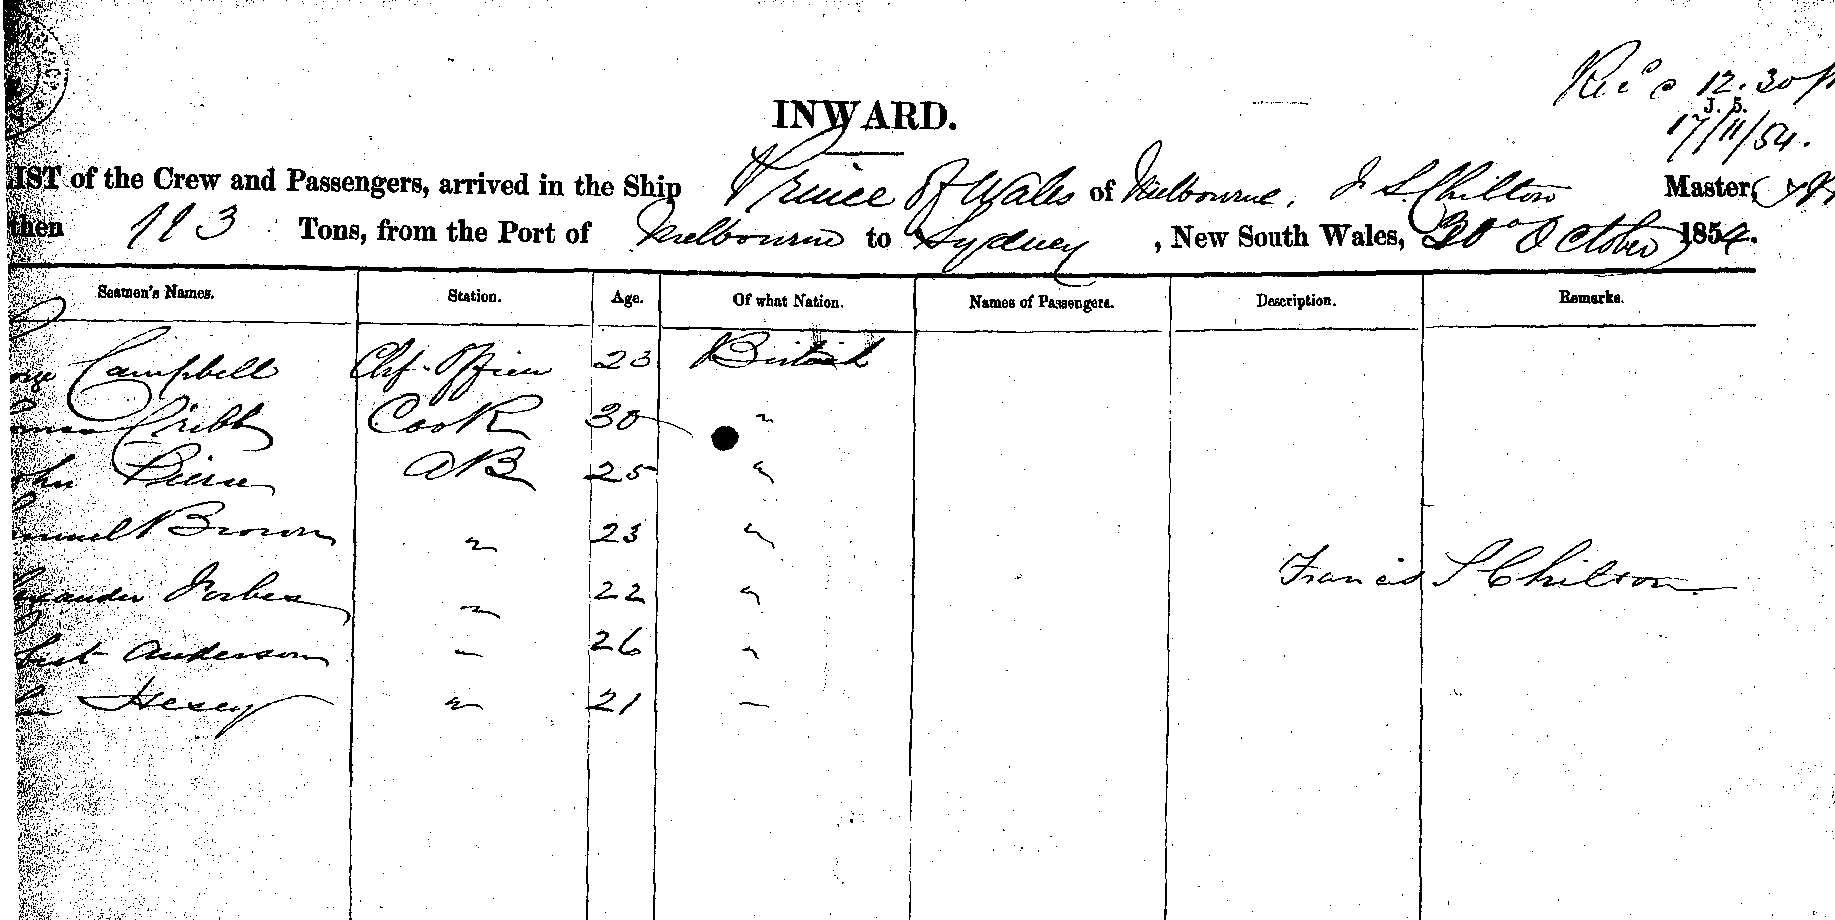 12.30
J. 5.
17/11/54.
INWARD.
LIST of the Crew and Passengers, arrived in the Ship Prince of Wales of Melbourne, F S Chilton Master,
then 113 Tons, from the Port of Melbourne to Sydney, New South Wales, 30 October 1854.
Seamen's Names. Station. Age. Of what Nation. Names of Passengers. Description. Remarks.
Campbell Chf. Officer 23 British
Cribb Cook 30 "
John Pierce AB 25 "
Samuel Brown " 23 "
Alexander Forbes " 22 "
Francis S Chilton
Anderson " 26 "
Hesey " 21 "